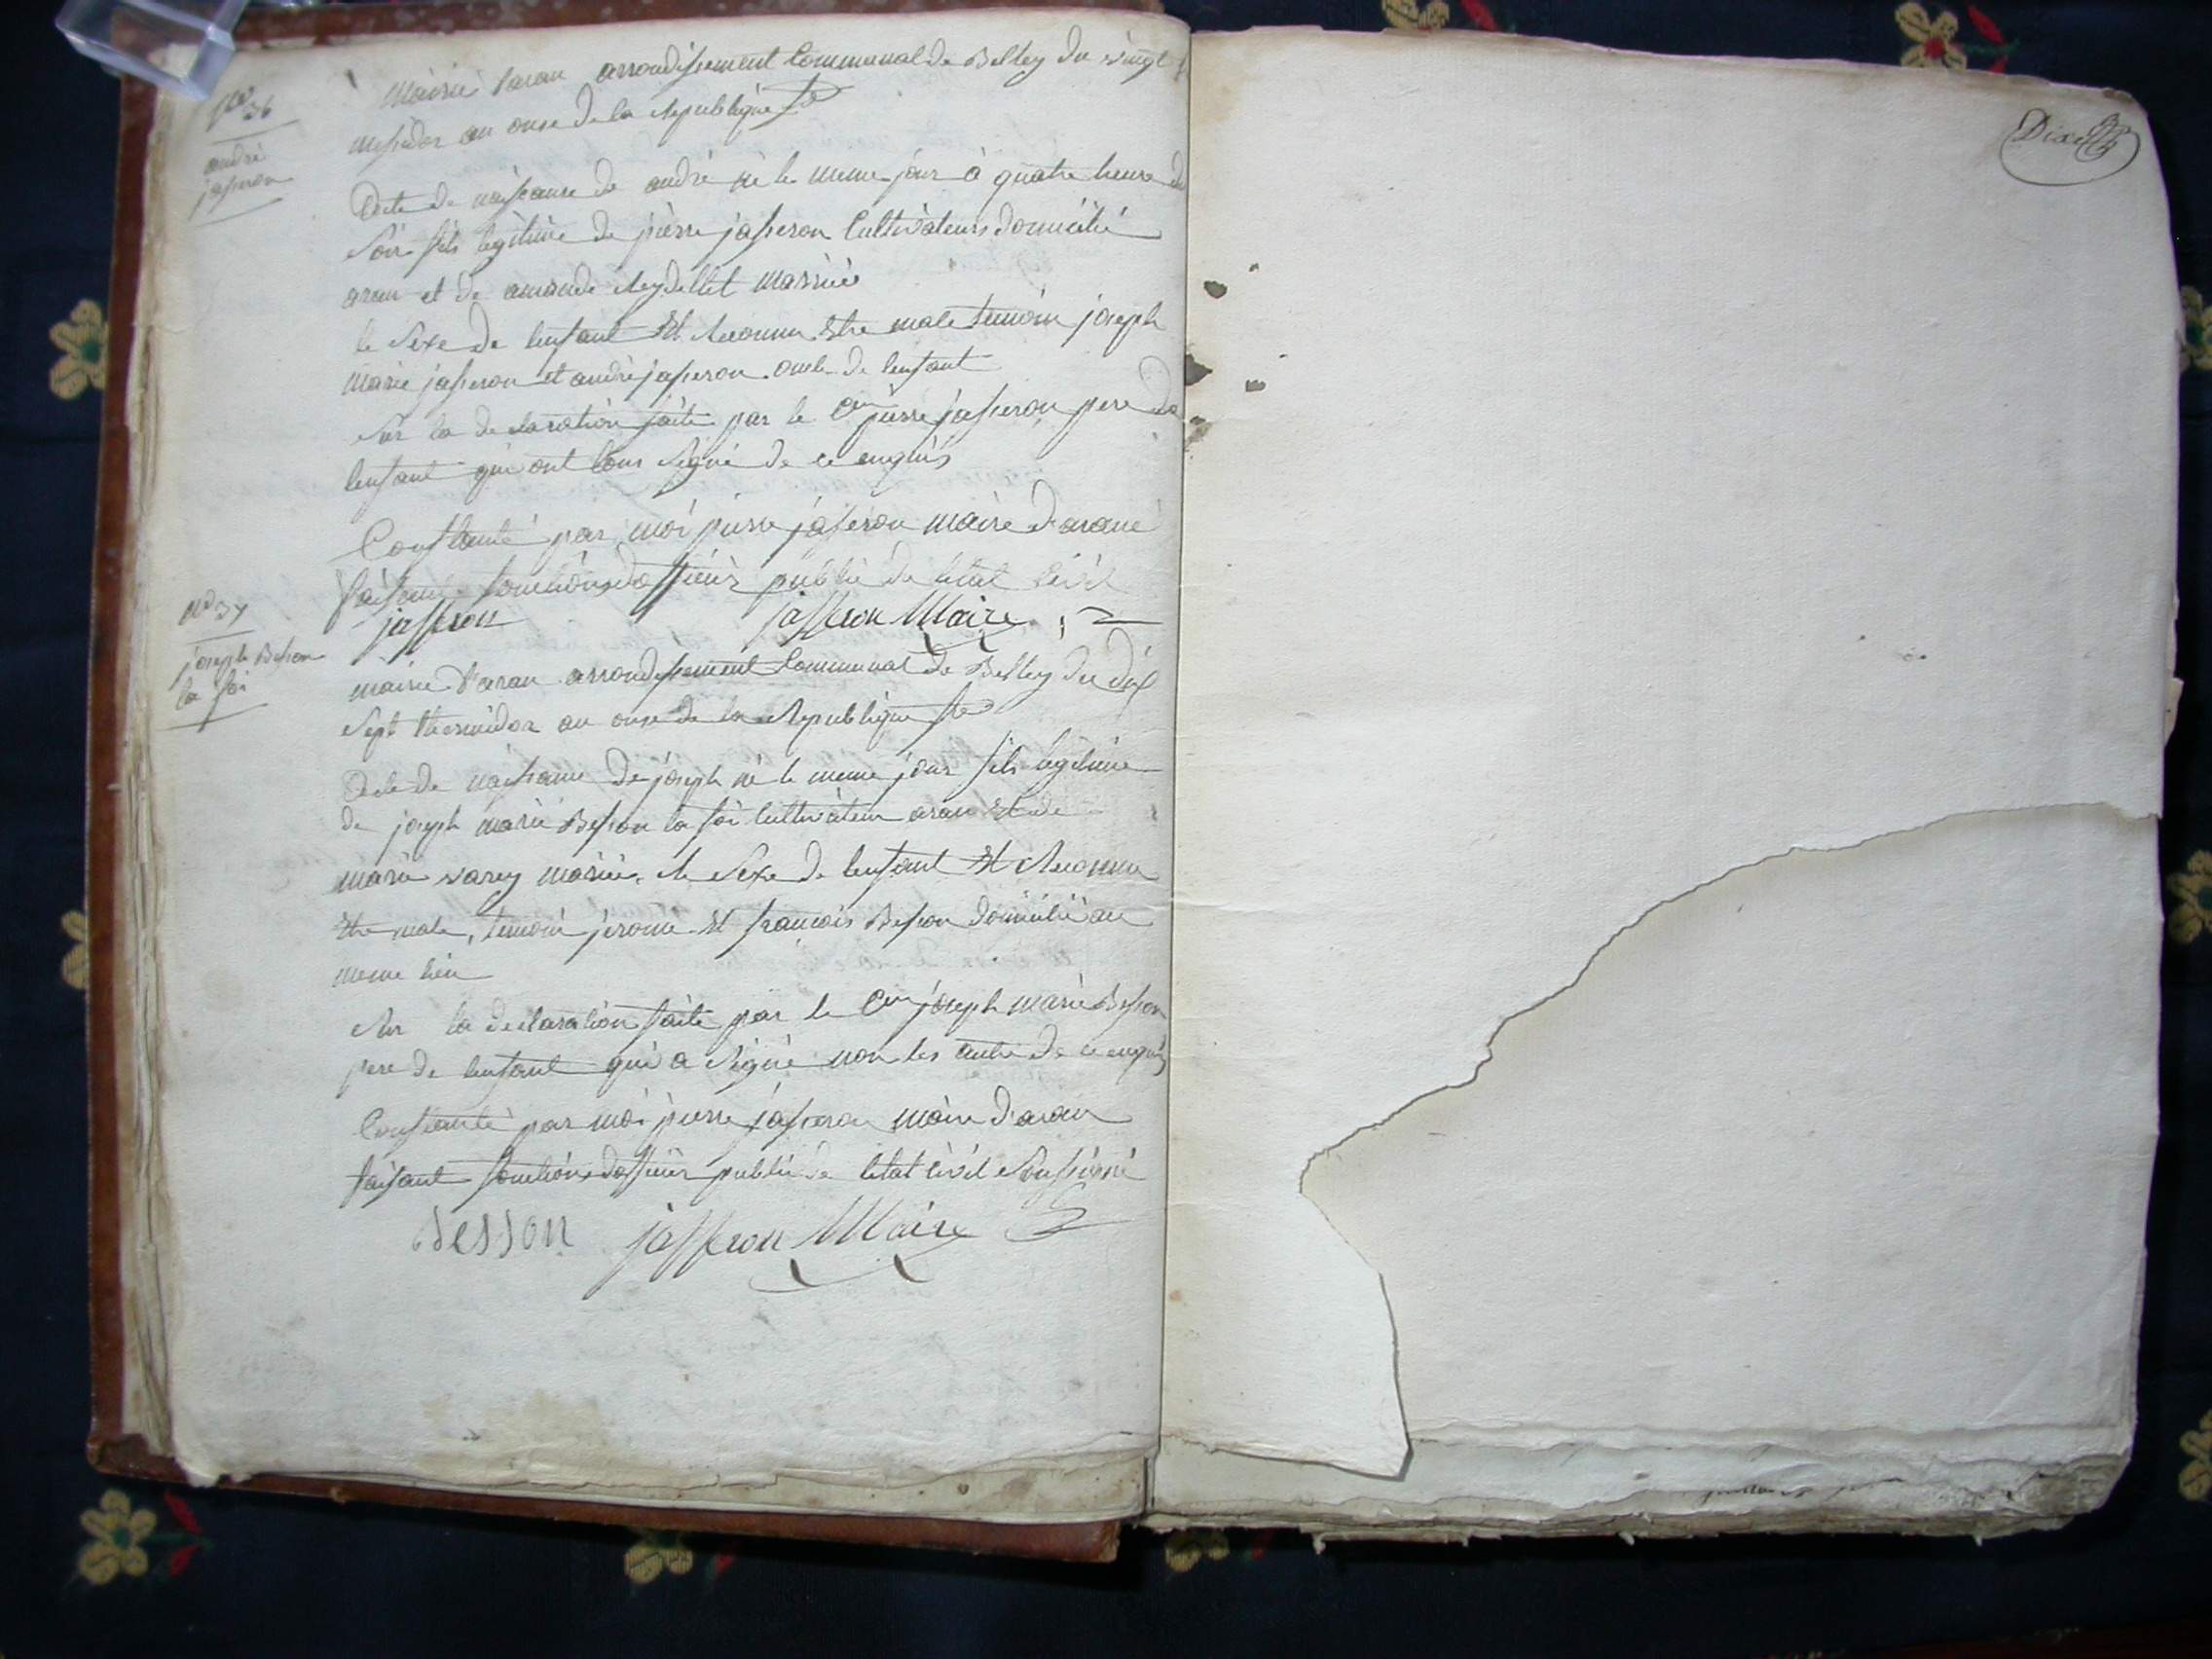 No 36
andré
jasseron
Mairie daran arrondissement Communal de Belley du vingt
messidor an onze de la republique
Acte de naissance de andré né le meme jour à quatre heure du
soir fils legitime de pierre jasseron Cultivateur domicilié
aran et de amande Reydellet mariée
le sexe de lenfant Et reconnu Etre male temoin joseph
marie jasseron et andré jasseron oncle de lenfant
sur la declaration faite par le Cen pierre jasseron pere de
lenfant qui ont tous signé de ce enquis
Constanté par moi pierre jasseron maire darane
faisant fonctions dofficier public de letat civil
jasseron jasseron Maire
No 37
joseph Besson
la foi
mairie daran arrondissement Communal de Belley du dix
sept thermidor an onze de la Republique
Acte de naissance de joseph né le meme jour fils legitime
de joseph marie Besson la foi Cultivateur aran Et de
marie varey mariée, le sexe de lenfant Et Reconnu
Etre male, temoin jerome Et francois Besson domicilié au
meme lieu
sur la declaration faite par le Cen joseph marie Besson
pere de lenfant qui a signé non les autre de ce enquis
Constanté par moi pierre jasseron maire daran
faisant fonctions dofficier public de letat civil soussigné
Besson jasseron Maire
Dix